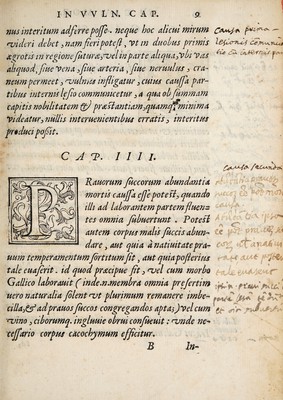 IN VVLN. CAP. 9
nus interitum adferre posse. neque hoc alicui mirum
videri debet, nam fieri potest, vt in duobus primis
ægrotis in regione suturæ, vel in parte aliqua, vbi vas
aliquod, siue vena, siue arteria, siue neruulus, cra-
neum permeet, vulnus infligatur, cuius caussa par-
tibus internis læso communicetur, a qua ob summam
capitis nobilitatem & præstantiam, quamquam minima
videatur, nullis interuenientibus erratis, interitus
produci possit.
causa prima
CAP. IIII.
PRauorum succorum abundantia
mortis caussa esse potest, quando
illi ad laborantem partem fluen-
tes omnia subuertunt. Potest
autem corpus malis succis abun-
dare, aut quia à natiuitate pra-
uum temperamentum sortitum sit, aut quia posterius
tale euaserit. id quod præcipue fit, vel cum morbo
Gallico laborauit (inde.n. membra omnia præsertim
uero naturalia solent vt plurimum remanere imbe-
cilla, & ad prauos succos congregandos apta;) vel cum
vino, ciborumq. ingluuie obrui consueuit: vnde ne-
cessario corpus cacochymum efficitur.
causa secunda
B In-